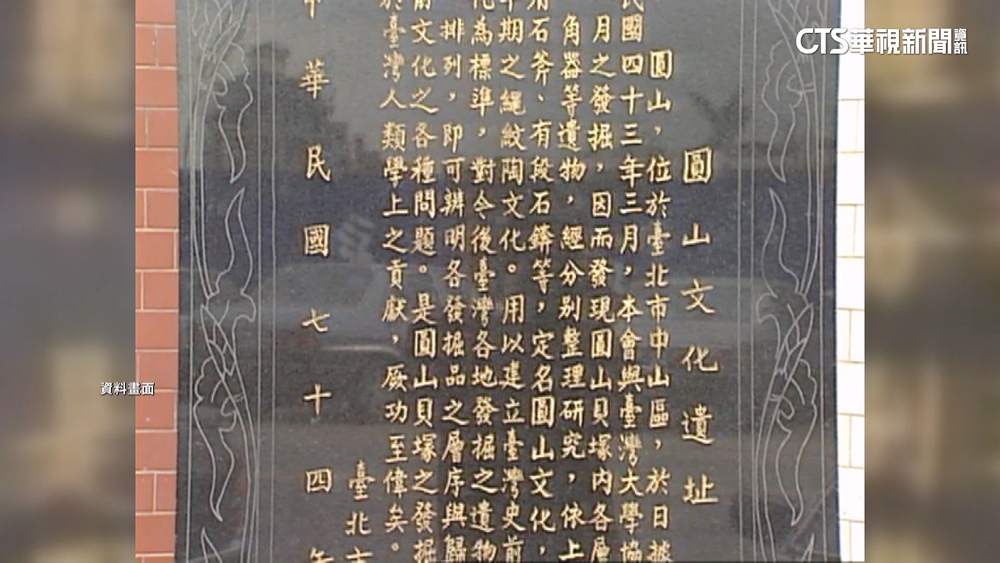 CTS華視新聞資訊
圓山文化遺址
圓山，位於臺北市中山區，於日據
民國四十三年三月，本會與臺灣大學協
月之發掘，因而發現圓山貝塚內各層
角器等遺物，經分別整理研究，依上
肩石斧、有段石錛等，定名圓山文化，
期之繩紋陶文化。用以建立臺灣史前
化為標準，對今後臺灣各地發掘之遺物
排列，即可辨明各發掘品之層序與歸
前文化之各種問題。是圓山貝塚之發掘
於臺灣人類學上之貢獻，厥功至偉矣。
臺北市
中華民國七十四年
資料畫面